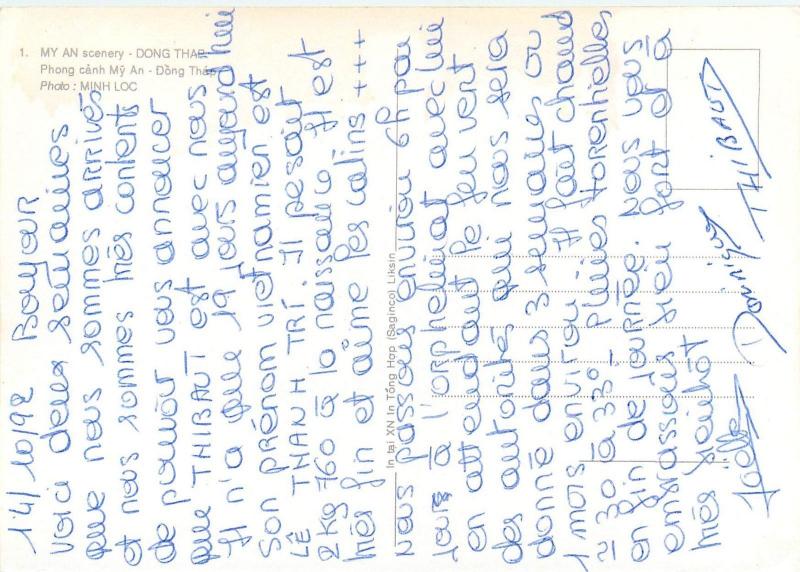 1. MY AN scenery - DONG THAP
Phong cảnh Mỹ An - Đồng Tháp
Photo : MINH LOC
In tại XN In Tổng Hợp (Saginco) Liksin
14/10/92 Bonjour
voici deux semaines
que nous sommes arrivés
et nous sommes très contents
de pouvoir vous annoncer
que THIBAUT est avec nous
Il n'a que 19 jours aujourd'hui
Son prénom vietnamien est
LÊ THANH TRÍ. Il pesait
2kg 760 à la naissance Il est
très fin et aime les calins +++
Nous passons environ 6h par
jours à l'orphelinat avec lui
en attendant le feu vert
des autorités qui nous sera
donné dans 3 semaines ou
1 mois environ. Il fait chaud
30 à 33° Pluies torentielles
en fin de journée. Nous vous
embrassons bien fort et à
très bientôt
Joëlle Dominique THIBAUT